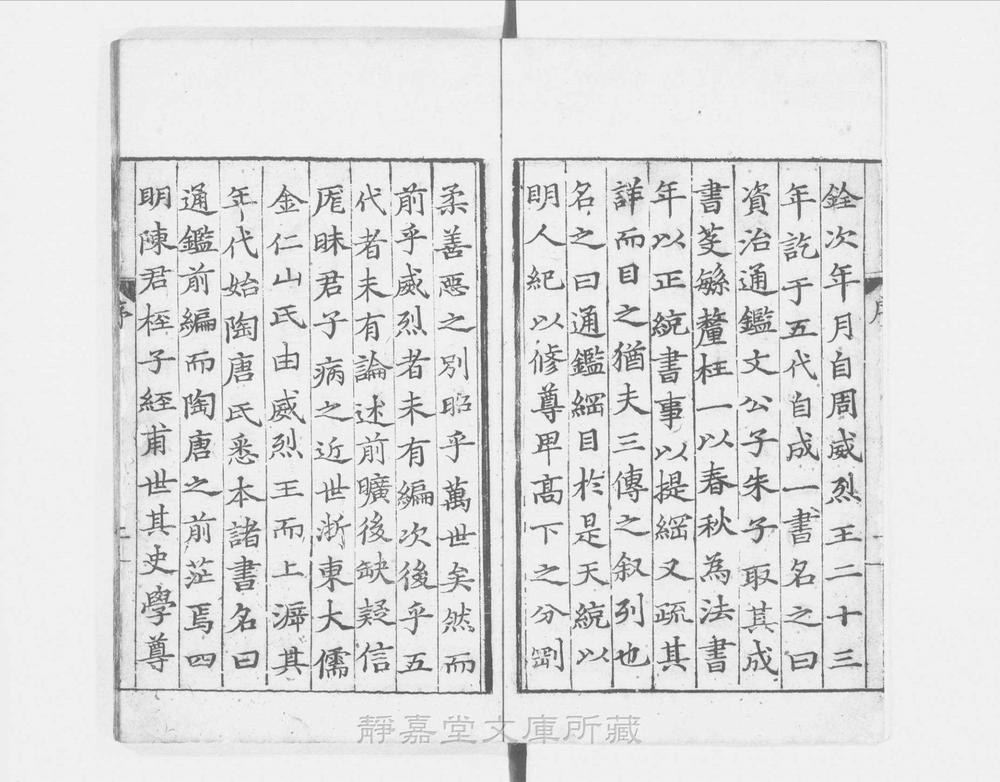 銓次年月自周威烈王二十三
年訖于五代自成一書名之曰
資治通鑑文公子朱子取其成
書芟繇釐枉一以春秋為法書
年以正統書事以提綱又疏其
詳而目之猶夫三傳之叙列也
名之曰通鑑綱目於是天統以
明人紀以修尊卑高下之分剛
柔善惡之別昭乎萬世矣然而
前乎威烈者未有編次後乎五
代者未有論述前曠後缺疑信
厖昧君子病之近世浙東大儒
金仁山氏由威烈王而上泝其
年代始陶唐氏悉本諸書名曰
通鑑前編而陶唐之前茫焉四
明陳君桱子經甫世其史學尊
序
靜嘉堂文庫所藏